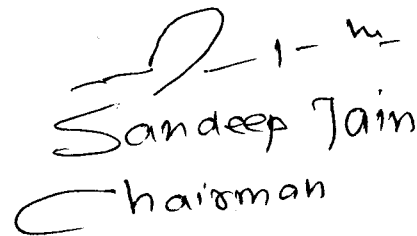 Sandeep Jain
Chairman